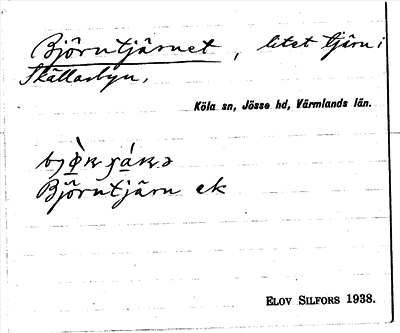 Björntjärnet, litet tjärn i
Skällarbyn,
Köla sn, Jösse hd, Värmlands län.
Björntjärn ek
ELOV SILFORS 1938.